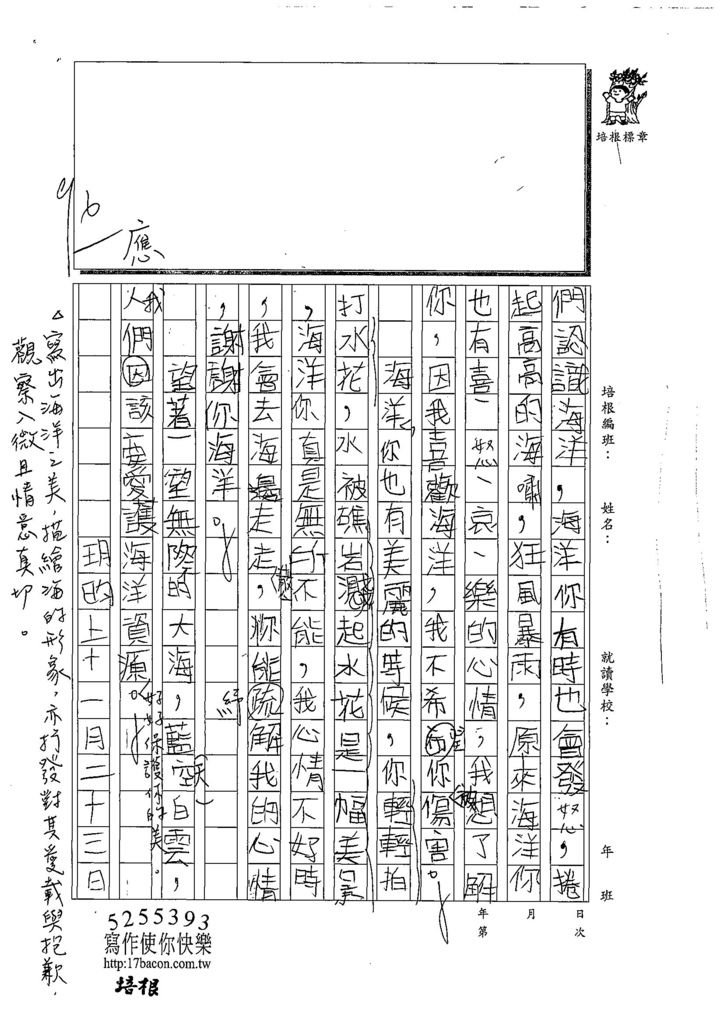 培根標章
96
應
培根編班：
姓名：
就讀學校：
年 班
年 月 日
第 次
們認識海洋，海洋你有時也會發怒，捲
起高高的海嘯，狂風暴雨，原來海洋你
也有喜、怒、哀、樂的心情，我想了解
你，因我喜歡海洋，我不希希你傷害。
望
被
海洋，你也有美麗的時候，你輕輕拍
打水花，水被礁岩濺起水花是一幅美景
，海洋你真是無所不能，我心情不好時
，我會去海邊走走，你能疏解我的心情
紓
，謝謝你海洋。
望著一望無際的大海，藍空白雲，
天
我
人們因該要愛護海洋資源。
好好保護你的美。
玥昀上十一月二十三日
△寫出海洋之美，描繪海的形象，亦抒發對其愛戴與抱歉，
觀察入微且情意真切。
5255393
寫作使你快樂
http:17bacon.com.tw
培根